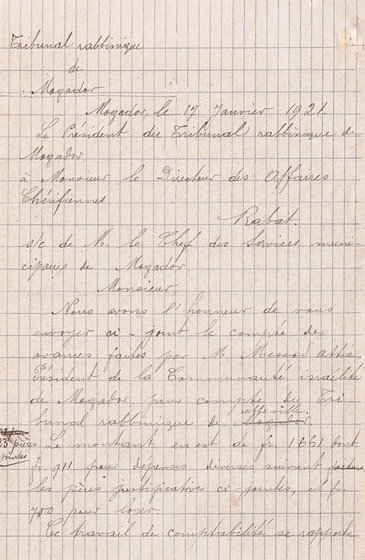 Tribunal rabbinique
de
Mogador
Mogador, le 17 Janvier 1921.
Le Président du Tribunal rabbinique de
Mogador
à Monsieur le Directeur des Affaires
Chérifiennes
Rabat.
s/c de M. le Chef des Services muni-
cipaux de Mogador
Monsieur,
Nous avons l'honneur de vous
envoyer ci-joint le compte des
avances faites par M. Messod Attia,
Président de la Communauté israélite
de Mogador pour compte du Tri-
bunal rabbinique de
23 pièces
jointes
Le montant est de fr. 1661 dont
fr. 911 pour dépenses diverses suivant facture
les pièces justificatives ci jointes, et fr.
750 pour loyer.
Ce travail de comptabilité se rapporte